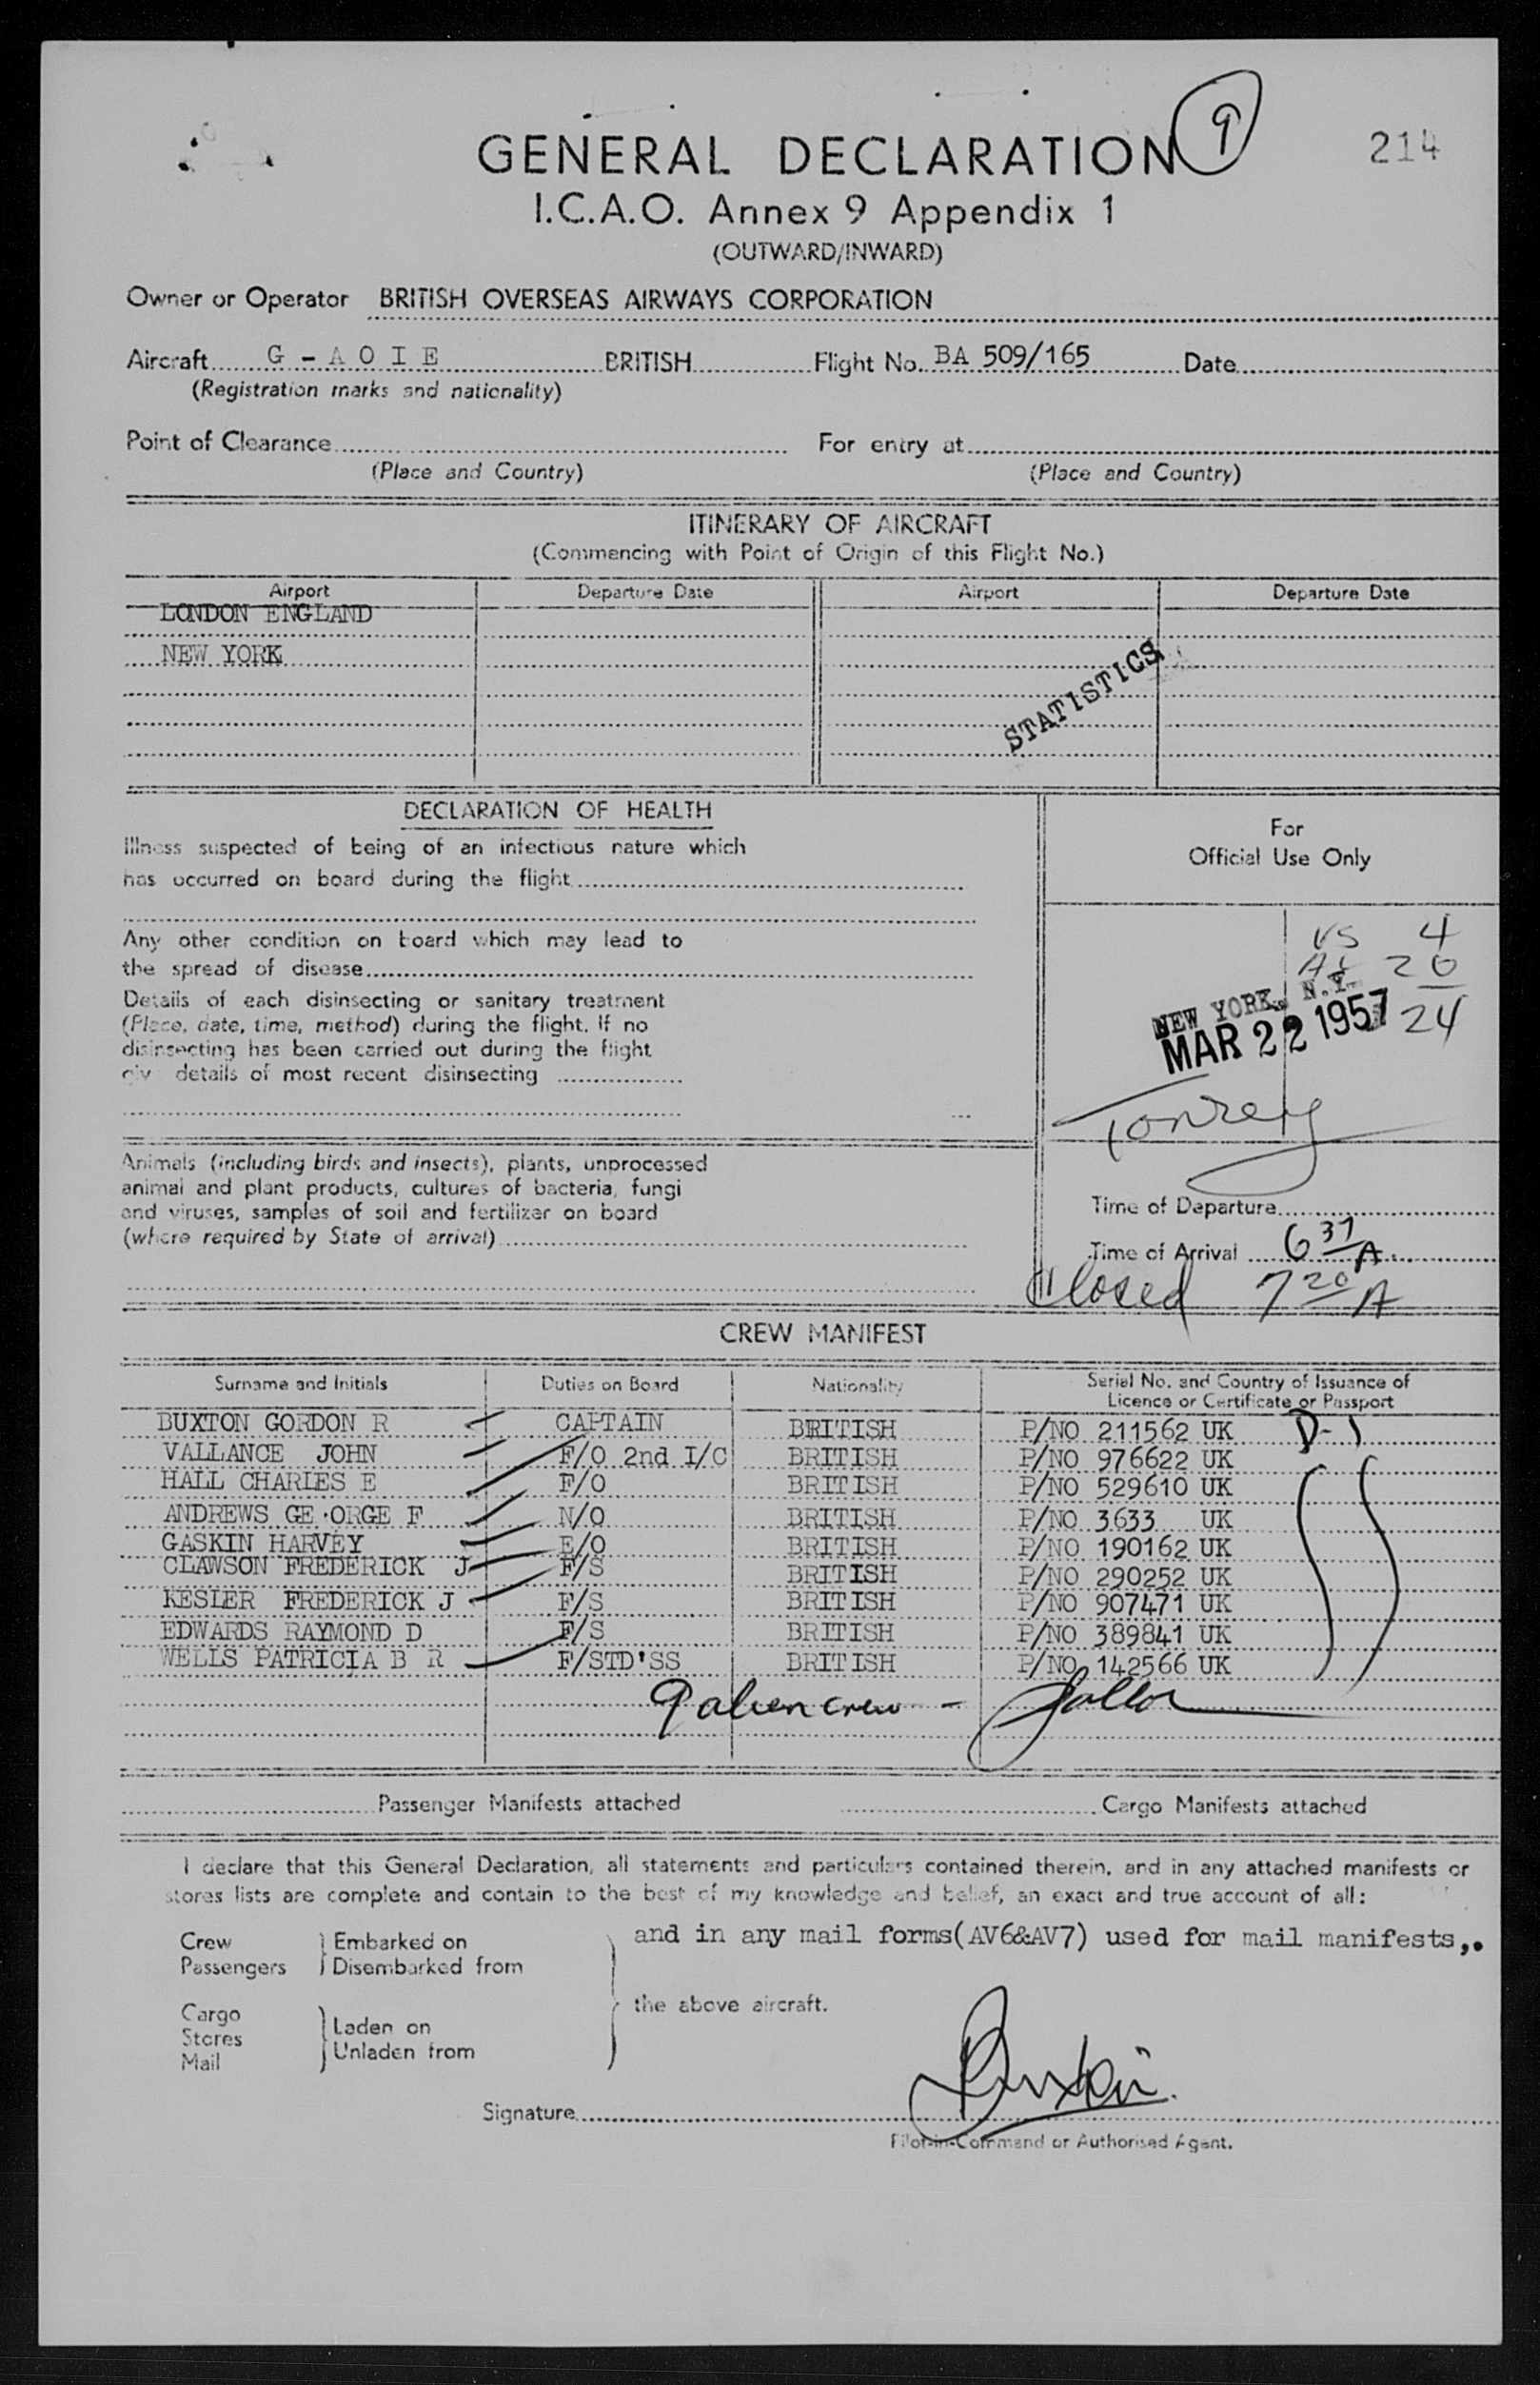 GENERAL DECLARATION 9 214
I.C.A.O. Annex 9 Appendix 1
(OUTWARD/INWARD)
Owner or Operator BRITISH OVERSEAS AIRWAYS CORPORATION
Aircraft G - A O I E BRITISH Flight No. BA 509/165 Date
(Registration marks and nationality)
Point of Clearance For entry at
(Place and Country) (Place and Country)
ITINERARY OF AIRCRAFT
(Commencing with Point of Origin of this Flight No.)
Airport Departure Date Airport Departure Date
LONDON ENGLAND
NEW YORK
STATISTICS
DECLARATION OF HEALTH
Illness suspected of being of an infectious nature which
has occurred on board during the flight
Any other condition on board which may lead to
the spread of disease
Details of each disinsecting or sanitary treatment
(Place, date, time, method) during the flight. If no
disinsecting has been carried out during the flight
giv details of most recent disinsecting
Animals (including birds and insects), plants, unprocessed
animal and plant products, cultures of bacteria, fungi
and viruses, samples of soil and fertilizer on board
(where required by State of arrival)
For
Official Use Only
US 4
20
24
NEW YORK, N.Y.
MAR 22 1957
Time of Departure
Time of Arrival 6 37 A.
Closed 7 20 A
CREW MANIFEST
Surname and Initials Duties on Board Nationality Serial No. and Country of Issuance of
Licence or Certificate or Passport
BUXTON GORDON R CAPTAIN BRITISH P/NO 211562 UK D-1
VALLANCE JOHN F/O 2nd I/C BRITISH P/NO 976622 UK
HALL CHARLES E F/O BRITISH P/NO 529610 UK
ANDREWS GE.ORGE F N/O BRITISH P/NO 3633 UK
GASKIN HARVEY E/O BRITISH P/NO 190162 UK
CLAWSON FREDERICK J F/S BRITISH P/NO 290252 UK
KESLER FREDERICK J F/S BRITISH P/NO 907471 UK
EDWARDS RAYMOND D F/S BRITISH P/NO 389841 UK
WELLS PATRICIA B R F/STD'SS BRITISH P/NO 142566 UK
9 alien crew -
Passenger Manifests attached Cargo Manifests attached
I declare that this General Declaration, all statements and particulars contained therein, and in any attached manifests or
stores lists are complete and contain to the best of my knowledge and belief, an exact and true account of all:
Crew Embarked on and in any mail forms(AV6&AV7) used for mail manifests,.
Passengers Disembarked from
Cargo the above aircraft.
Stores Laden on
Mail Unladen from
Signature Buxton
Pilot-in-Command or Authorised Agent.